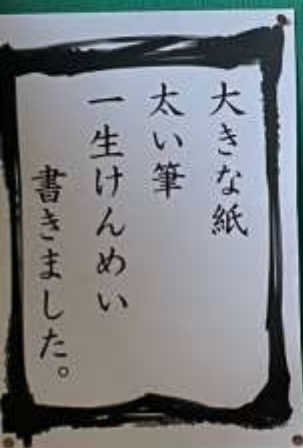 大きな紙
太い筆
一生けんめい
書きました。